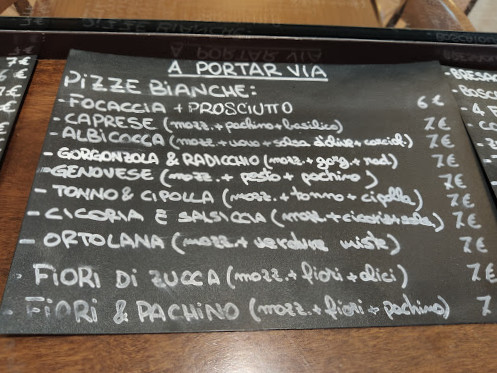 A PORTAR VIA
PIZZE BIANCHE:
- FOCACCIA + PROSCIUTTO 6€
- CAPRESE (mozz. + pachino + basilico) 7€
- ALBICOCCA (mozz. + uovo + salsa d'olive + carciof.) 7€
- GORGONZOLA & RADICCHIO (mozz. + gorg + rad) 7€
- GENOVESE (mozz. + pesto + pachino) 7€
- TONNO & CIPOLLA (mozz. + tonno + cipolla) 7€
- CICORIA E SALSICCIA (mozz + cicoria + sals) 7€
- ORTOLANA (mozz + verdure miste) 7€
- FIORI DI ZUCCA (mozz. + fiori + alici) 7€
- FIORI & PACHINO (mozz. + fiori + pachino) 7